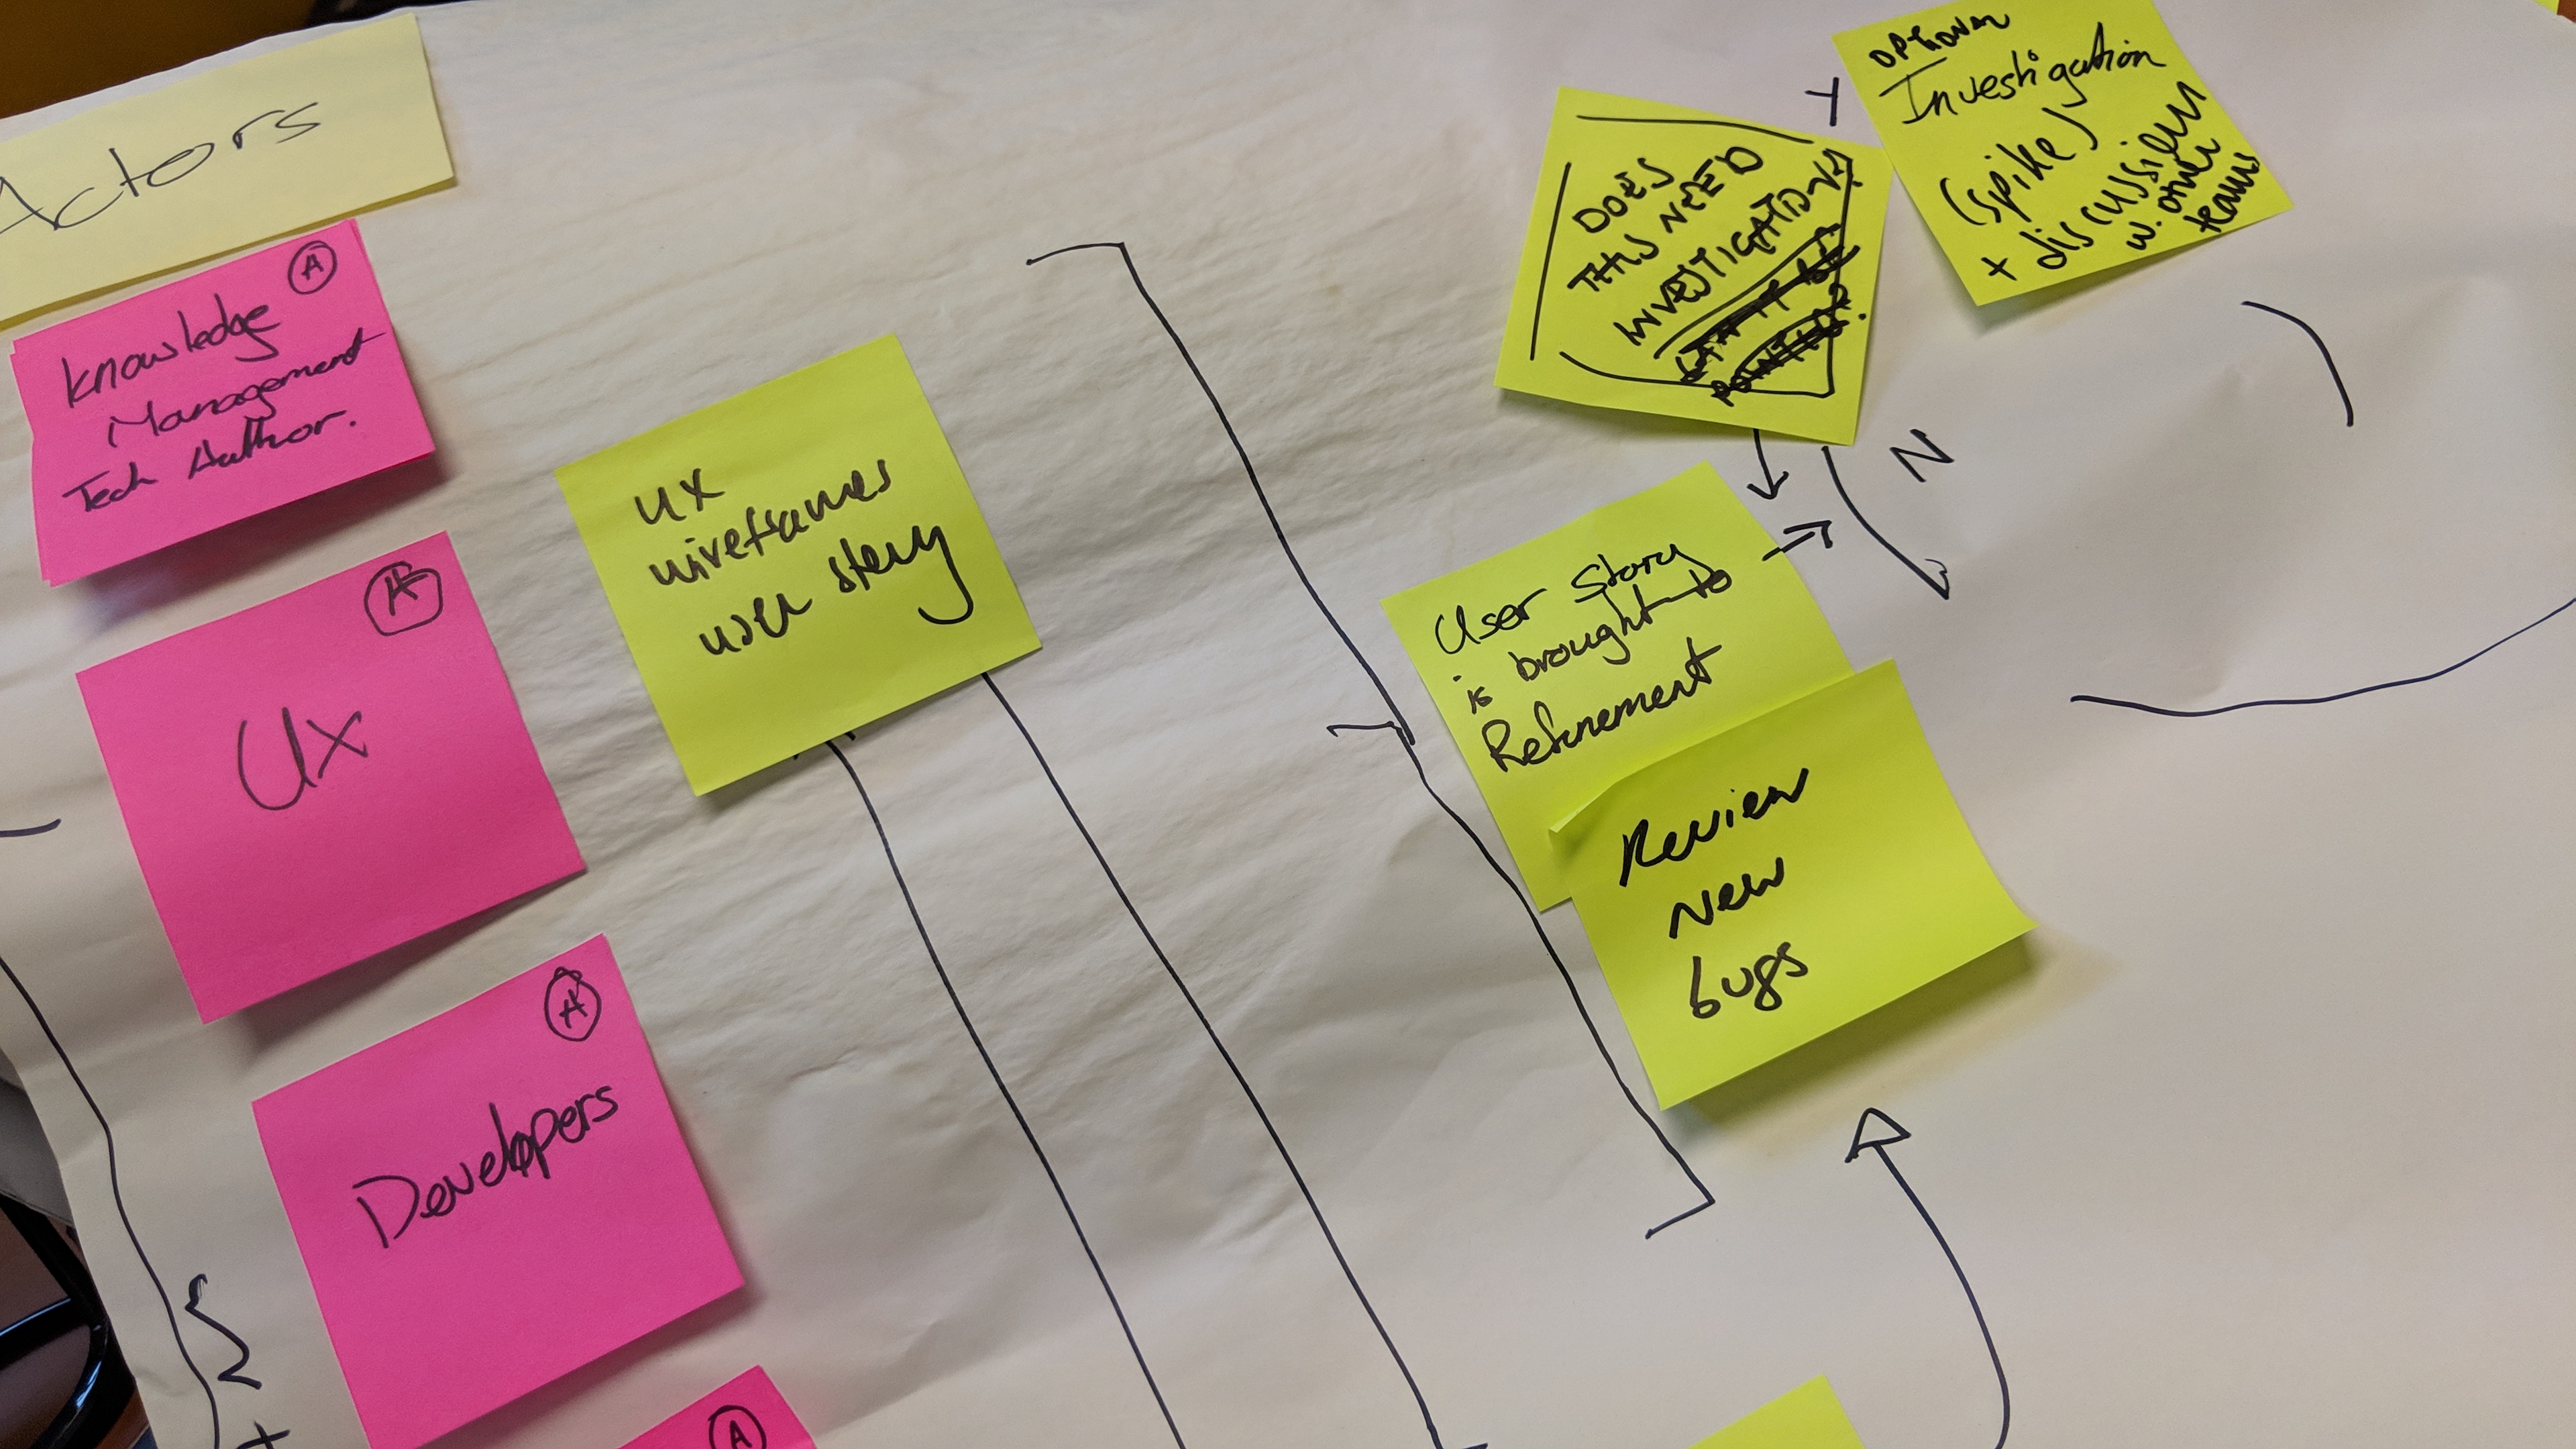 Actors
A
Knowledge
Management
Tech Author.
A
Ux
A
Developers
A
UX
wireframes
user story
DOES
THIS NEED
INVESTIGATION
Y
N
OPTIONAL
Investigation
(spike)
+ discussion
w. other
teams
User Story
is brought to
Refinement
Review
New
bugs